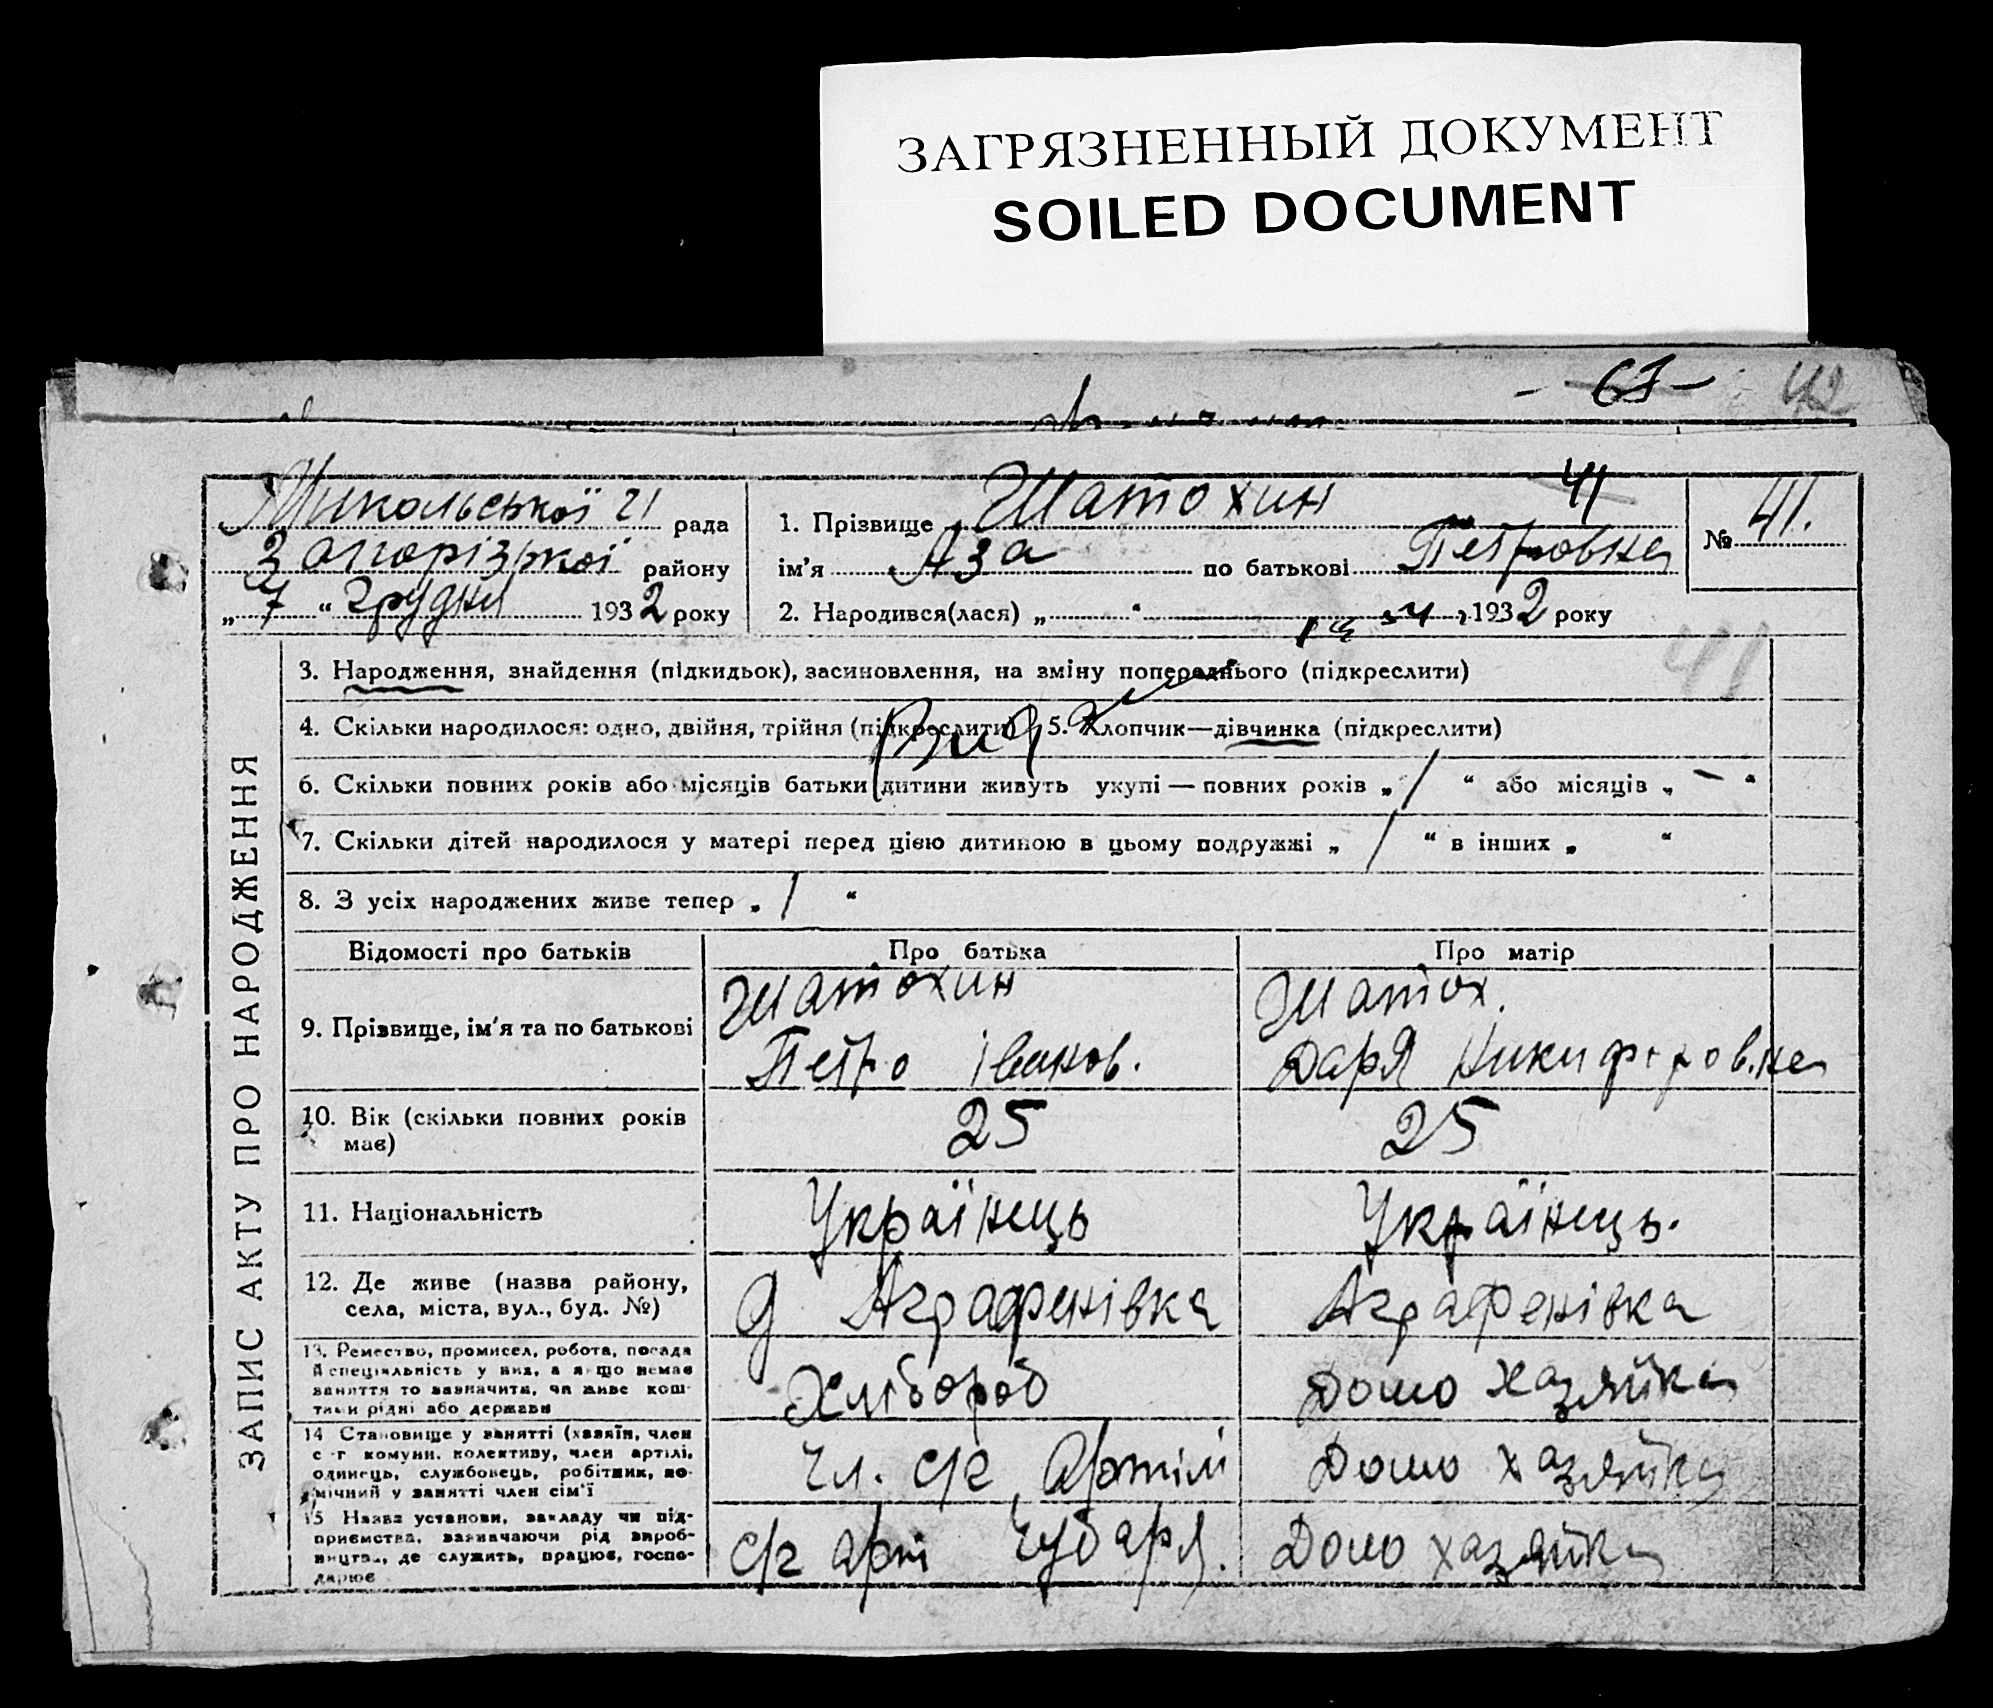 ЗАГРЯЗНЕННЫЙ ДОКУМЕНТ
SOILED DOCUMENT
- 67 - 42
Микольської рада
Запорізької району
„ 7 “ грудня 1932 року
1. Прізвище Шатохин 41
ім’я Аза по батькові Петровна
2. Народився(лася) „ “ 1932 року
№ 41.
41
ЗАПИС АКТУ ПРО НАРОДЖЕННЯ
3. Народження, знайдення (підкидьок), засиновлення, на зміну попереднього (підкреслити)
4. Скільки народилося: одно, двійня, трійня (підкреслити) 5. Хлопчик—дівчинка (підкреслити)
6. Скільки повних років або місяців батьки дитини живуть укупі — повних років „ 1 “ або місяців „ — “
7. Скільки дітей народилося у матері перед цією дитиною в цьому подружжі „ 1 “ в інших „ “
8. З усіх народжених живе тепер „ 1 “
Відомості про батьків Про батька Про матір
9. Прізвище, ім’я та по батькові
Шатохин
Петро Іванов.
Шатох.
Даря Никифоровна
10. Вік (скільки повних років
має)
25 25
11. Національність Українець Українець.
12. Де живе (назва району,
села, міста, вул., буд. №)
д Аграфенівка Аграфенівка
13. Ремество, промисел, робота, посада
й спеціяльність у них, а якщо немає
заняття то зазначити, чи живе кош-
тами рідні або держави
Хлібороб Домо хазяйка
14 Становище у занятті (хазяїн, член
с-г комуни, колективу, член артілі,
одинець, службовець, робітник, по-
мічний у занятті член сім’ї
Чл. с/г Артілі Домо хазяйка
15 Назва установи, закладу чи під-
приємства, зазначаючи рід вироб-
ництва, де служить, працює, госпо-
дарює
с/г арт Чубаря. Домо хазяйка